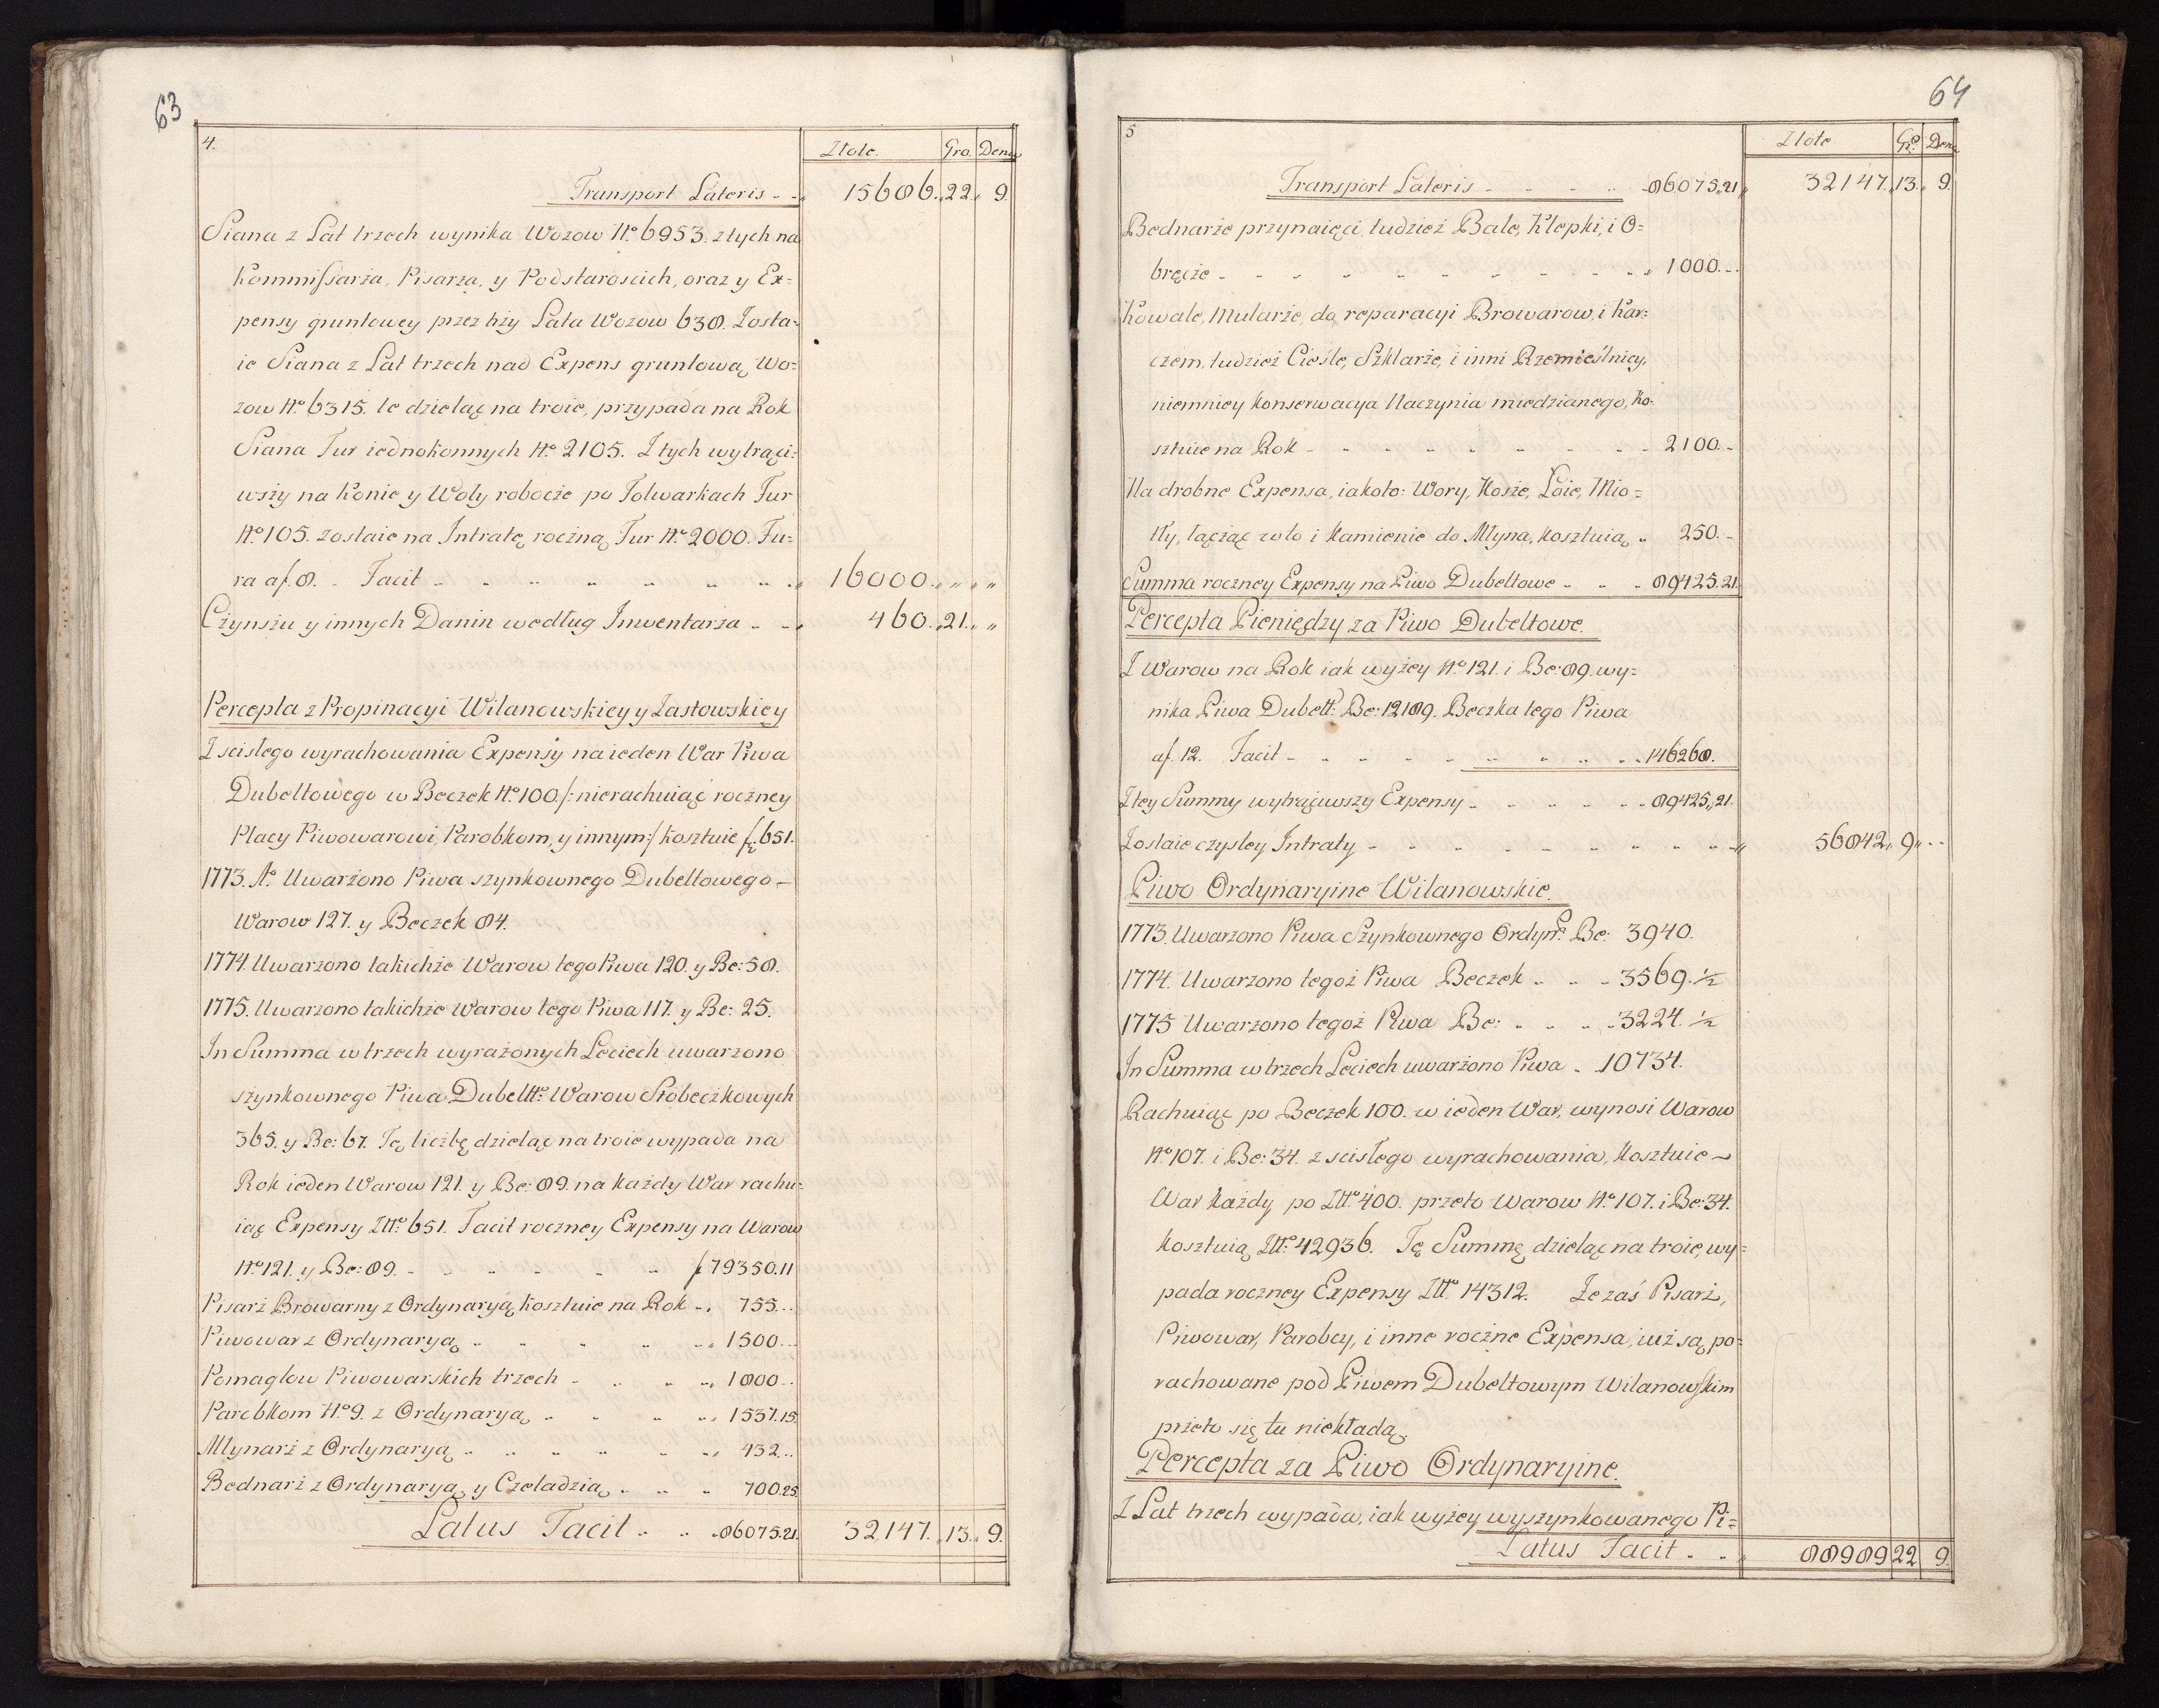 63
4.
Złote. Gro. Dena
Transport Lateris - - 15686.,,22.,, 9.
Siana z Lat trzech wynika Wozow No. 6953. z tych na
Kommissarza, Pisarza, y Podstaroscich, oraz y Ex=
pensy gruntowey przez trzy Lata Wozow 638. Zosta=
ie Siana z Lat trzech nad Expens gruntową Wo=
zow No. 6315. te dzieląc na troie, przypada na Rok
Siana Fur iednokonnych No. 2105. Z tych wytrąci=
wszy na Konie y Woły robocze po Folwarkach Fur
No. 105. zostaie na Intratę roczną Fur No. 2000. Fu=
ra a f. 8. - Facit - - - - - - - 16000.,, ,, ,,
Czynszu y innych Danin według Inwentarza - - 460.,,21.,, ,,
Percepta z Propinacyi Wilanowskiey y Zastowskiey
Z scisłego wyrachowania Expensy na ieden War Piwa
Dubeltowego w Beczek No. 100. /: nierachuiąc roczney
Płacy Piwowarowi, Parobkom, y innym :/ kosztuie f. 651.
1773. Ao. Uwarzono Piwa szynkownego Dubeltowego -
Warow 127. y Beczek 84.
1774. Uwarzono takichże Warow tego Piwa 120. y Be: 58.
1775. Uwarzono takichże Warow tego Piwa 117. y Be: 25.
In Summa w trzech wyrażonych Leciech uwarzono
szynkownego Piwa Dubeltto: Warow Stobeczkowych
365. y Be: 67. Tę liczbę dzieląc na troie wypada na
Rok ieden Warow 121. y Be: 89. na każdy War rachu=
iąc Expensy Złto: 651. Facit roczney Expensy na Warow
No. 121. y Be: 89. - - - - - f 79350.11
Pisarz Browarny z Ordynaryą kosztuie na Rok - 755...
Piwowar z Ordynaryą - - - - - 1500...
Pomagłow Piwowarskich trzech - - - - 1800..
Parobkom No. 9. z Ordynaryą - - - - 1537.15
Młynarz z Ordynaryą - - - - - 432...
Bednarz z Ordynaryą y Czeladzią - - - 700.25
Latus Facit - - - 86075.21. 32,147.,,13.,, 9.
64
5
Złote Gr. Dena
Transport Lateris - - - - 86075,,21,, 32147.,13., 9.
Bednarze przynaięci, tudzież Bale, Klepki, i O=
bręcze - - - - - - - - - - 1000.--
Kowale, Mularze, do reparacyi Browarow, i Kar=
czem, tudzież Cieśle, Szklarze, i inni Rzemieślnicy,
niemniey konserwacya Naczynia miedzianego, ko-
sztuie na Rok - - - - - - - - 2100.-
Na drobne Expensa, iakoto: Wory, Kosze, Łoie, Mio=
tły, łącząc w to i Kamienie do Młyna, kosztuią „ 250.-
Summa roczney Expensy na Piwo Dubeltowe - - - 89425.21.
Percepta Pieniędzy za Piwo Dubeltowe.
Z Warow na Rok iak wyżey No. 121. i Be: 89. wy=
nika Piwa Dubeltt: Be: 12189. Beczka tego Piwa
af. 12. Facit - - - - - - - - 146268.
Z tey Summy wytrąciwszy Expensy - - - - - 89425,,21.
Zostaie czystey Intraty - - - - - - - - - - 56842,, 9,,--
Piwo Ordynaryine Wilanowskie.
1773. Uwarzono Piwa Szynkownego Ordyno. Be: 3940.
1774. Uwarzono tegoż Piwa Beczek - - - 3569. ½
1775 Uwarzono tegoż Piwa Be: - - - - 3224. ½
In Summa w trzech Leciech uwarzono Piwa - 10734.
Rachuiąc po Beczek 100. w ieden War, wynosi Warow
No. 107. i Be: 34. z scisłego wyrachowania, kosztuie -
War każdy po Złto. 400. przeto Warow No. 107. i Be: 34.
kosztuią Złto: 42936. Tę Summę dzieląc na troie, wy=
pada roczney Expensy Złto 14312. Że zaś Pisarz,
Piwowar, Parobcy, i inne roczne Expensa, iuż są po=
rachowane pod Piwem Dubeltowym Wilanowskim
przeto się tu niekładą.
Percepta za Piwo Ordynaryine.
Z Lat trzech wypada, iak wyżey wyszynkowanego Pi=
Latus Facit - - „ 88989 22 9.